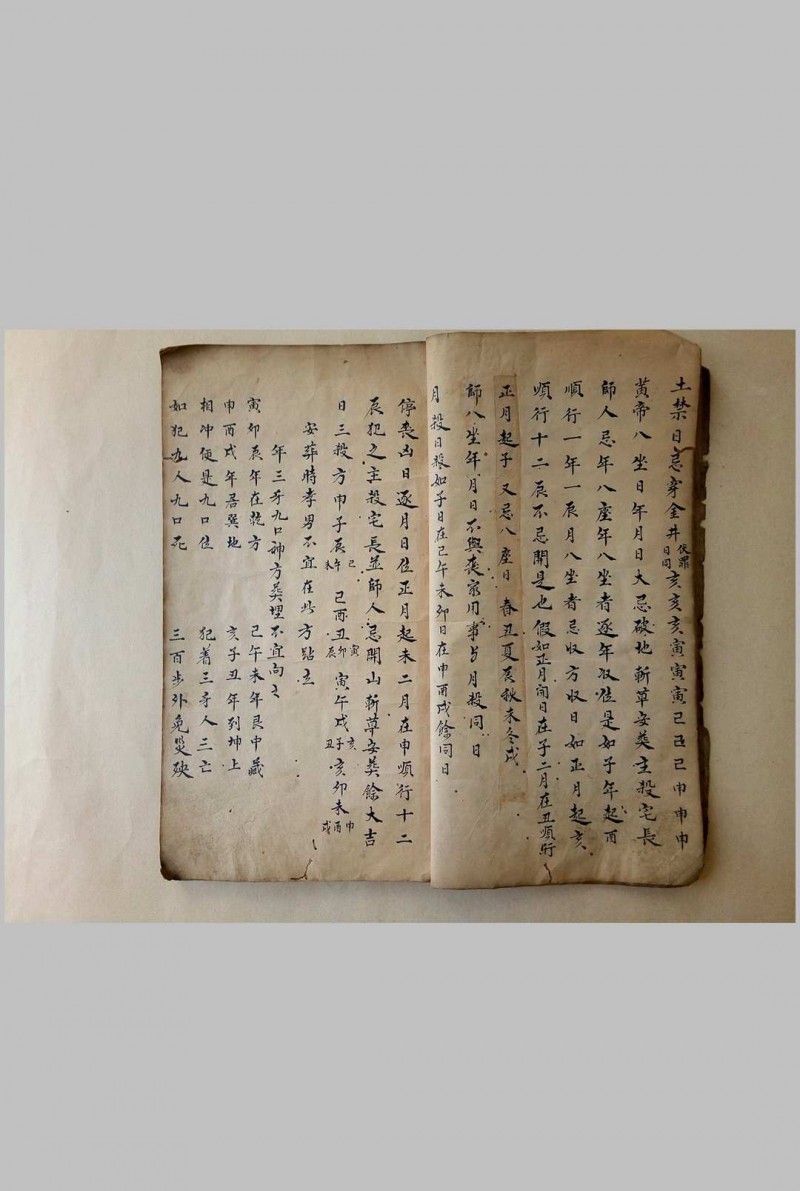 土禁日忌穿金井伏罪日同亥亥亥寅寅寅己己己申申申
黃帝八坐日年月日大忌破地斬草安葬主殺宅長
師人忌年八座年八坐者逐年収位是如子年起酉
順行一年一辰月八坐者忌収方収日如正月起亥
順行十二辰不忌開是也假如正月開日在子二月在丑順行
正月起子又忌八座日春丑夏辰秋未冬戌
師八坐年月日不與丧家用事与月殺同日
月殺日殺如子日在己午未卯日在申酉戌餘同日
停丧凶日逐月日位正月起未二月在申順行十二
辰犯之主殺宅長並師人忌開山斬草安葬餘大吉
日三殺方申子辰己午未己酉丑寅卯辰寅午戌亥子丑亥卯未申酉戌
安葬時孝男不宜在此方點主
年三牙九口神方葬埋不宜向之
寅卯辰年在乾方 己午未年艮中藏
申酉戌年居巽地 亥子丑年到坤上
相冲便是九口位 犯着三牙人三亡
如犯九人九口死 三百步外免災殃